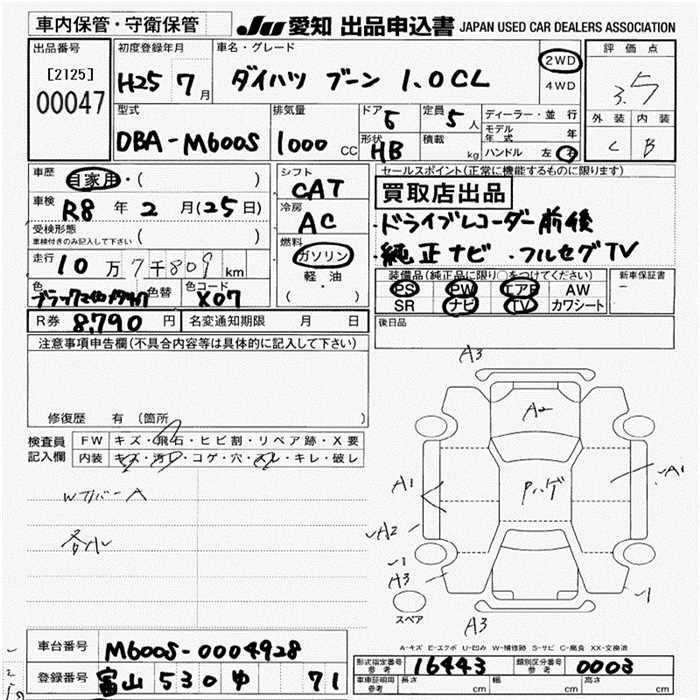 車内保管・守衛保管
JU 愛知 出品申込書 JAPAN USED CAR DEALERS ASSOCIATION
出品番号
[2125]
00047
初度登録年月
H25 7 月
車名・グレード
ダイハツ ブーン 1.0CL
2WD
4WD
評価点
3.5
外装 内装
C B
型式
DBA-M600S
排気量
1000 CC
ドア
5
形状
HB
定員
5 人
積載
kg
ディーラー・並行
モデル年式 年
ハンドル 左 右
車歴
自家用・( )
車検
R8 年 2 月(25日)
受検形態
車検付きのみ記入して下さい ( )
走行
10 万 7 千 809 km
色
色替
色コード
X07
R券 8,790 円
名変通知期限 月 日
シフト
CAT
冷房
AC
燃料
ガソリン
軽・油
( )
セールスポイント(正常に機能するものに限ります)
買取店出品
・ドライブレコーダー前後
・純正ナビ ・フルセグTV
装備品(純正品に限り○をつけてください)
PS PW エアB AW
SR ナビ TV カワシート
新車保証書
−
後日品
注意事項申告欄(不具合内容等は具体的に記入して下さい)
修復歴 有 (箇所 )
検査員記入欄
FW キズ・飛石・ヒビ割・リペア跡・X要
内装 キズ・汚レ・コゲ・穴・スレ・キレ・破レ
A3
A2
A1
Pハゲ
A1
A2
A3
A3
スペア
A-キズ E-エクボ U-凹み W-補修跡 S-サビ C-腐食 XX-交換済
車台番号 M600S-0004928
登録番号 富山 530 ゆ 71
形式指定番号 参考 16443
類別区分番号 参考 0003
車庫証明用 参考 長さ cm 幅 cm 高さ cm